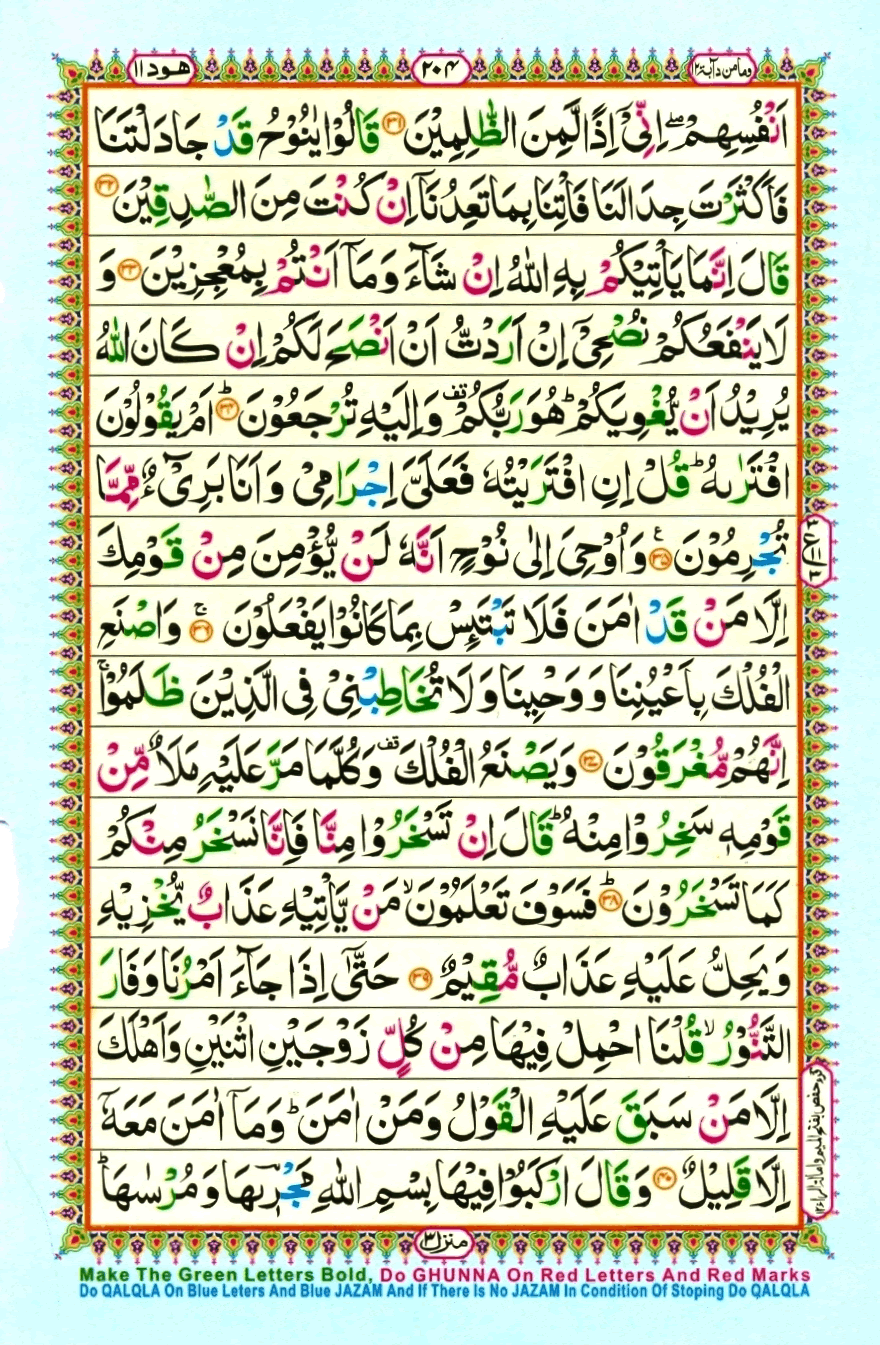 وما من دآبة ۱۲
۲۰۴
هود ۱۱
اَنْفُسِهِمْ ۖۚ اِنِّیْۤ اِذًا لَّمِنَ الظّٰلِمِیْنَ ﴿۳۱﴾ قَالُوْا یٰنُوْحُ قَدْ جَادَلْتَنَا
فَاَكْثَرْتَ جِدَالَنَا فَاْتِنَا بِمَا تَعِدُنَاۤ اِنْ كُنْتَ مِنَ الصّٰدِقِیْنَ ﴿۳۲﴾
قَالَ اِنَّمَا یَاْتِیْكُمْ بِهِ اللّٰهُ اِنْ شَآءَ وَمَاۤ اَنْتُمْ بِمُعْجِزِیْنَ ﴿۳۳﴾ وَ
لَا یَنْفَعُكُمْ نُصْحِیْۤ اِنْ اَرَدْتُّ اَنْ اَنْصَحَ لَكُمْ اِنْ كَانَ اللّٰهُ
یُرِیْدُ اَنْ یُّغْوِیَكُمْ ؕ هُوَ رَبُّكُمْ قف وَاِلَیْهِ تُرْجَعُوْنَ ؕ﴿۳۴﴾ اَمْ یَقُوْلُوْنَ
افْتَرٰىهُ ؕ قُلْ اِنِ افْتَرَیْتُهٗ فَعَلَیَّ اِجْرَامِیْ وَاَنَا بَرِیْٓءٌ مِّمَّا
تُجْرِمُوْنَ ﴿۳۵﴾ ع وَاُوْحِیَ اِلٰی نُوْحٍ اَنَّهٗ لَنْ یُّؤْمِنَ مِنْ قَوْمِكَ
اِلَّا مَنْ قَدْ اٰمَنَ فَلَا تَبْتَىِٕسْ بِمَا كَانُوْا یَفْعَلُوْنَ ۚ﴿۳۶﴾ وَاصْنَعِ
الْفُلْكَ بِاَعْیُنِنَا وَوَحْیِنَا وَلَا تُخَاطِبْنِیْ فِی الَّذِیْنَ ظَلَمُوْا ۚ
اِنَّهُمْ مُّغْرَقُوْنَ ﴿۳۷﴾ وَیَصْنَعُ الْفُلْكَ قف وَكُلَّمَا مَرَّ عَلَیْهِ مَلَاٌ مِّنْ
قَوْمِهٖ سَخِرُوْا مِنْهُ ؕ قَالَ اِنْ تَسْخَرُوْا مِنَّا فَاِنَّا نَسْخَرُ مِنْكُمْ
كَمَا تَسْخَرُوْنَ ؕ﴿۳۸﴾ فَسَوْفَ تَعْلَمُوْنَ ۙ مَنْ یَّاْتِیْهِ عَذَابٌ یُّخْزِیْهِ
وَیَحِلُّ عَلَیْهِ عَذَابٌ مُّقِیْمٌ ﴿۳۹﴾ حَتّٰۤی اِذَا جَآءَ اَمْرُنَا وَفَارَ
التَّنُّوْرُ ۙ قُلْنَا احْمِلْ فِیْهَا مِنْ كُلٍّ زَوْجَیْنِ اثْنَیْنِ وَاَهْلَكَ
اِلَّا مَنْ سَبَقَ عَلَیْهِ الْقَوْلُ وَمَنْ اٰمَنَ ؕ وَمَاۤ اٰمَنَ مَعَهٗۤ
اِلَّا قَلِیْلٌ ﴿۴۰﴾ وَقَالَ ارْكَبُوْا فِیْهَا بِسْمِ اللّٰهِ مَجْرٖىهَا وَمُرْسٰىهَا ؕ
منزل ۳
Make The Green Letters Bold, Do GHUNNA On Red Letters And Red Marks
Do QALQLA On Blue Leters And Blue JAZAM And If There Is No JAZAM In Condition Of Stoping Do QALQLA